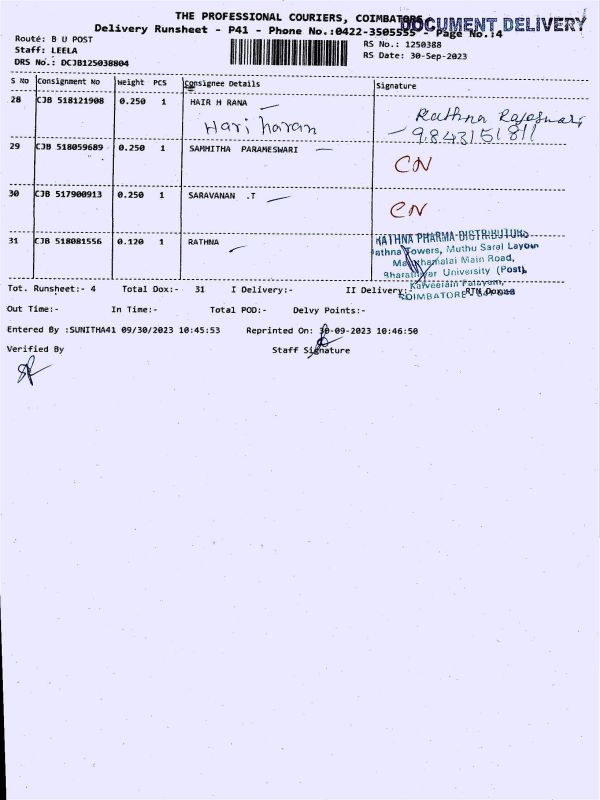 THE PROFESSIONAL COURIERS, COIMBATORE
DOCUMENT DELIVERY
Delivery Runsheet - P41 - Phone No.:0422-3505555 - Page No.:4
Route: B U POST
RS No.: 1250388
Staff: LEELA
RS Date: 30-Sep-2023
DRS No.: DCJB125038804
S No Consignment No Weight PCS Consignee Details Signature
28 CJB 518121908 0.250 1 HAIR H RANA
Hari haran
Rathna Rajeswari
9843151811
29 CJB 518059689 0.250 1 SAMMITHA PARAMESWARI
CN
30 CJB 517900913 0.250 1 SARAVANAN .T
CN
31 CJB 518081556 0.120 1 RATHNA
RATHNA PHARMA DISTRIBUTORS
Rathna Towers, Muthu Saral Layout
Main Road,
Bharathiyar University (Post),
Kalveeram Palayam,
COIMBATORE
Tot. Runsheet:- 4 Total Dox:- 31 I Delivery:- II Delivery:- RTN
Out Time:- In Time:- Total POD:- Delvy Points:-
Entered By :SUNITHA41 09/30/2023 10:45:53 Reprinted On: 30-09-2023 10:46:50
Verified By Staff Signature